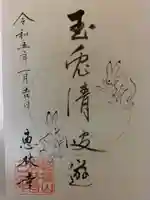 玉兎清波遊
令和五年一月吉日
恵林寺